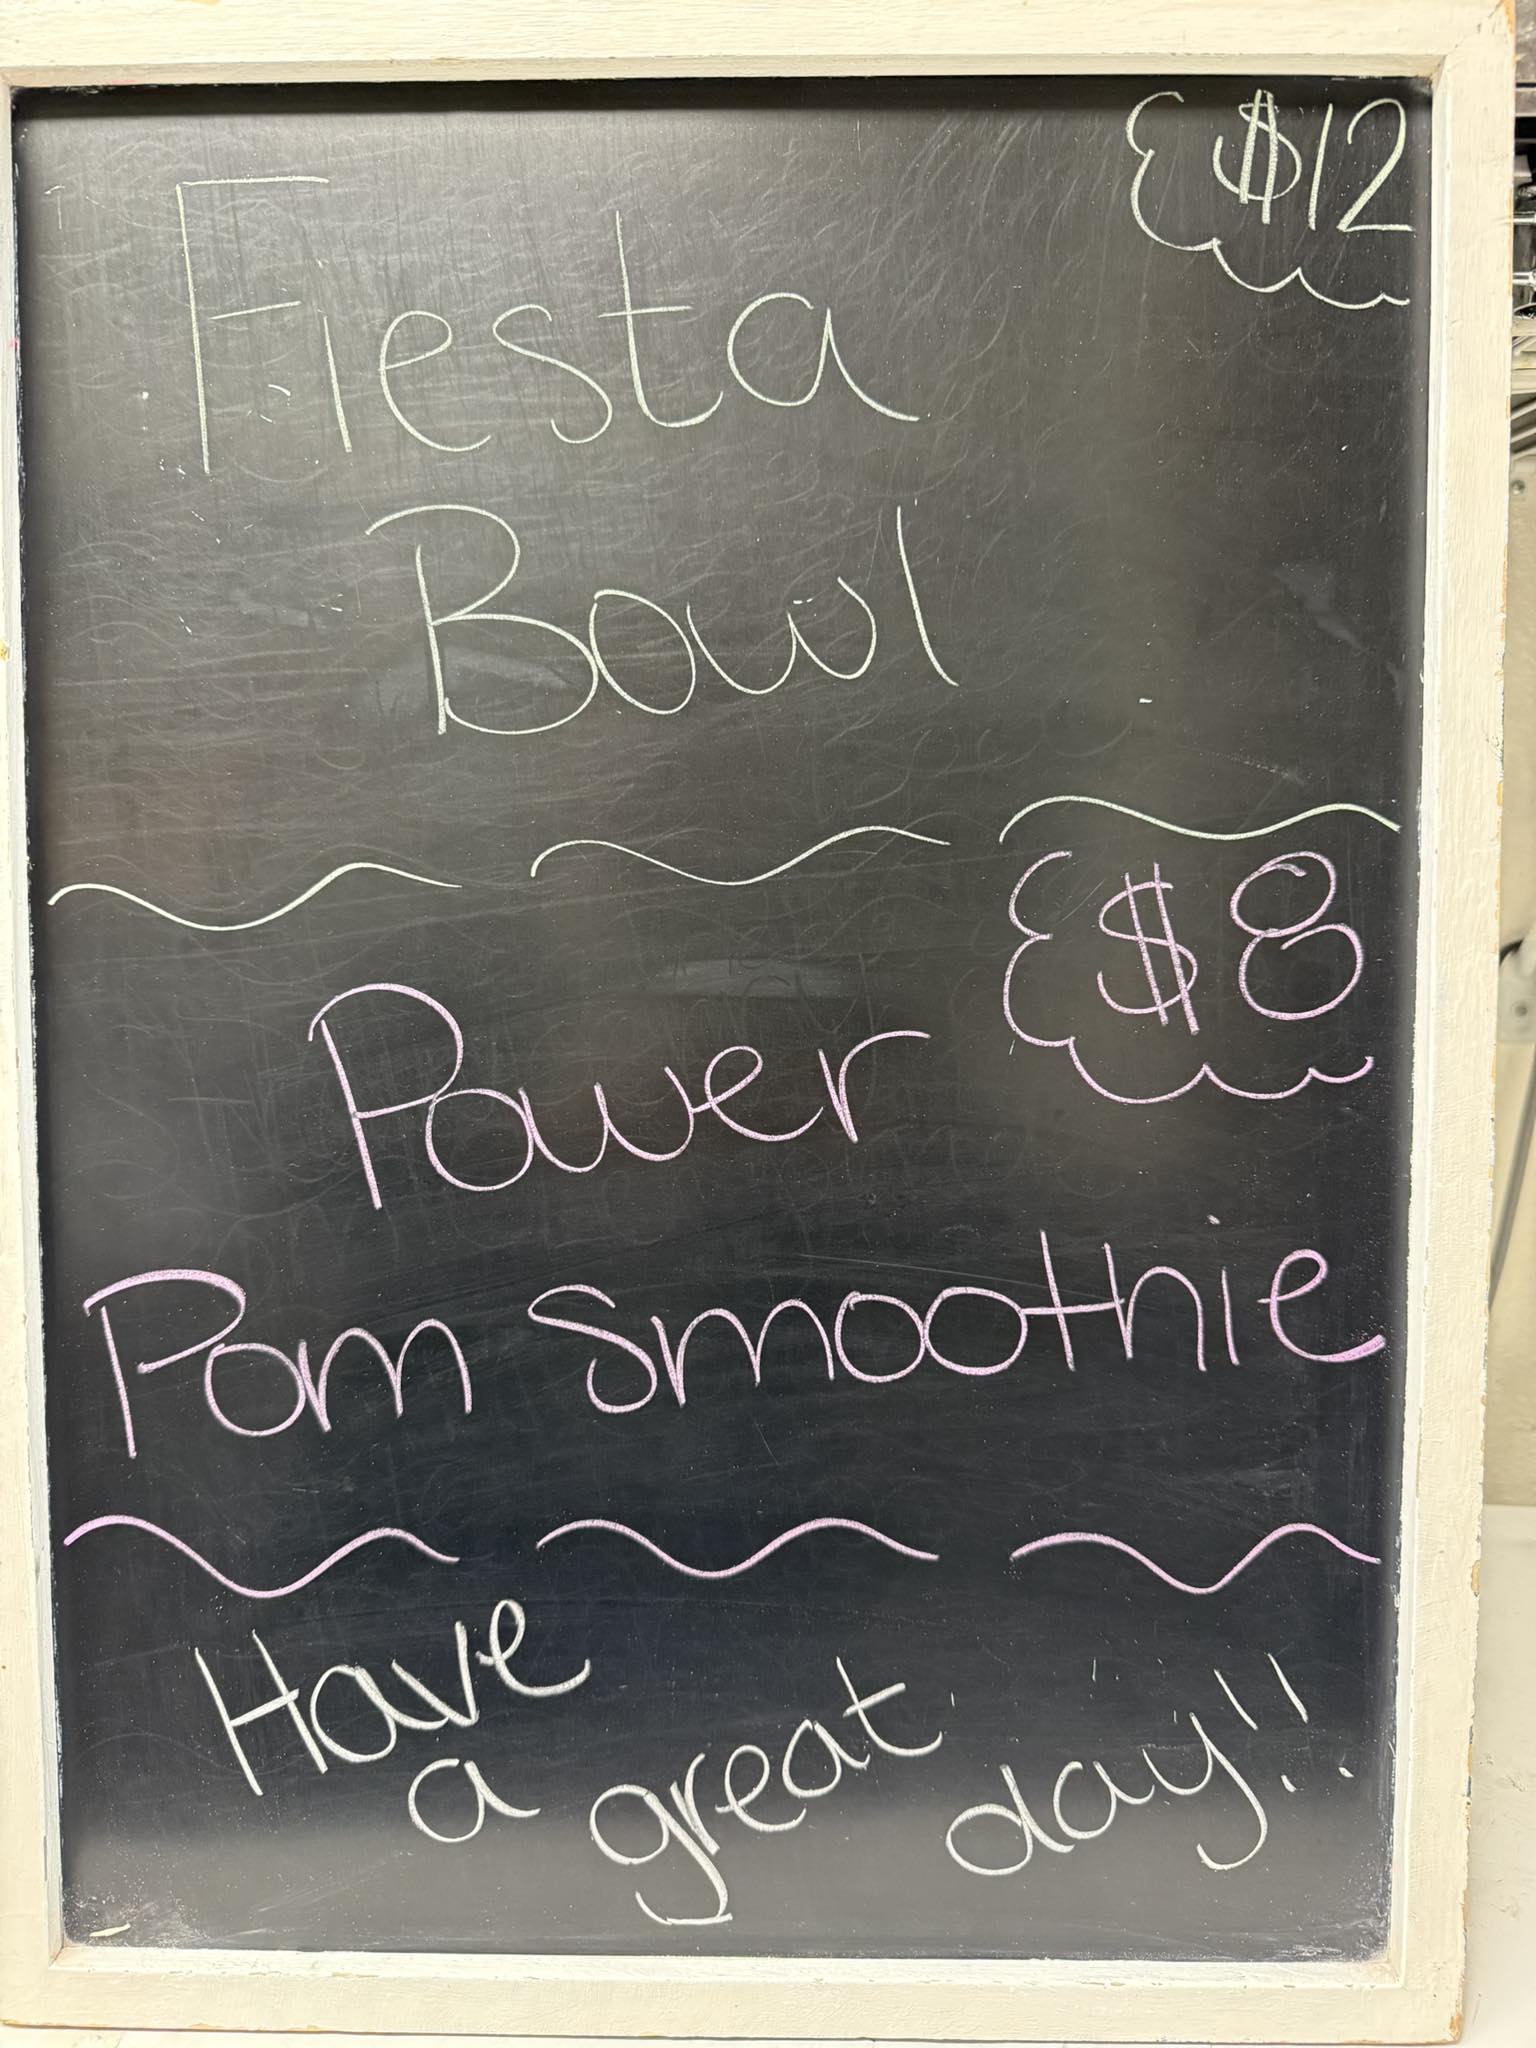 $12
Fiesta
Bowl
$8
Power
Pom Smoothie
Have
a great day!!